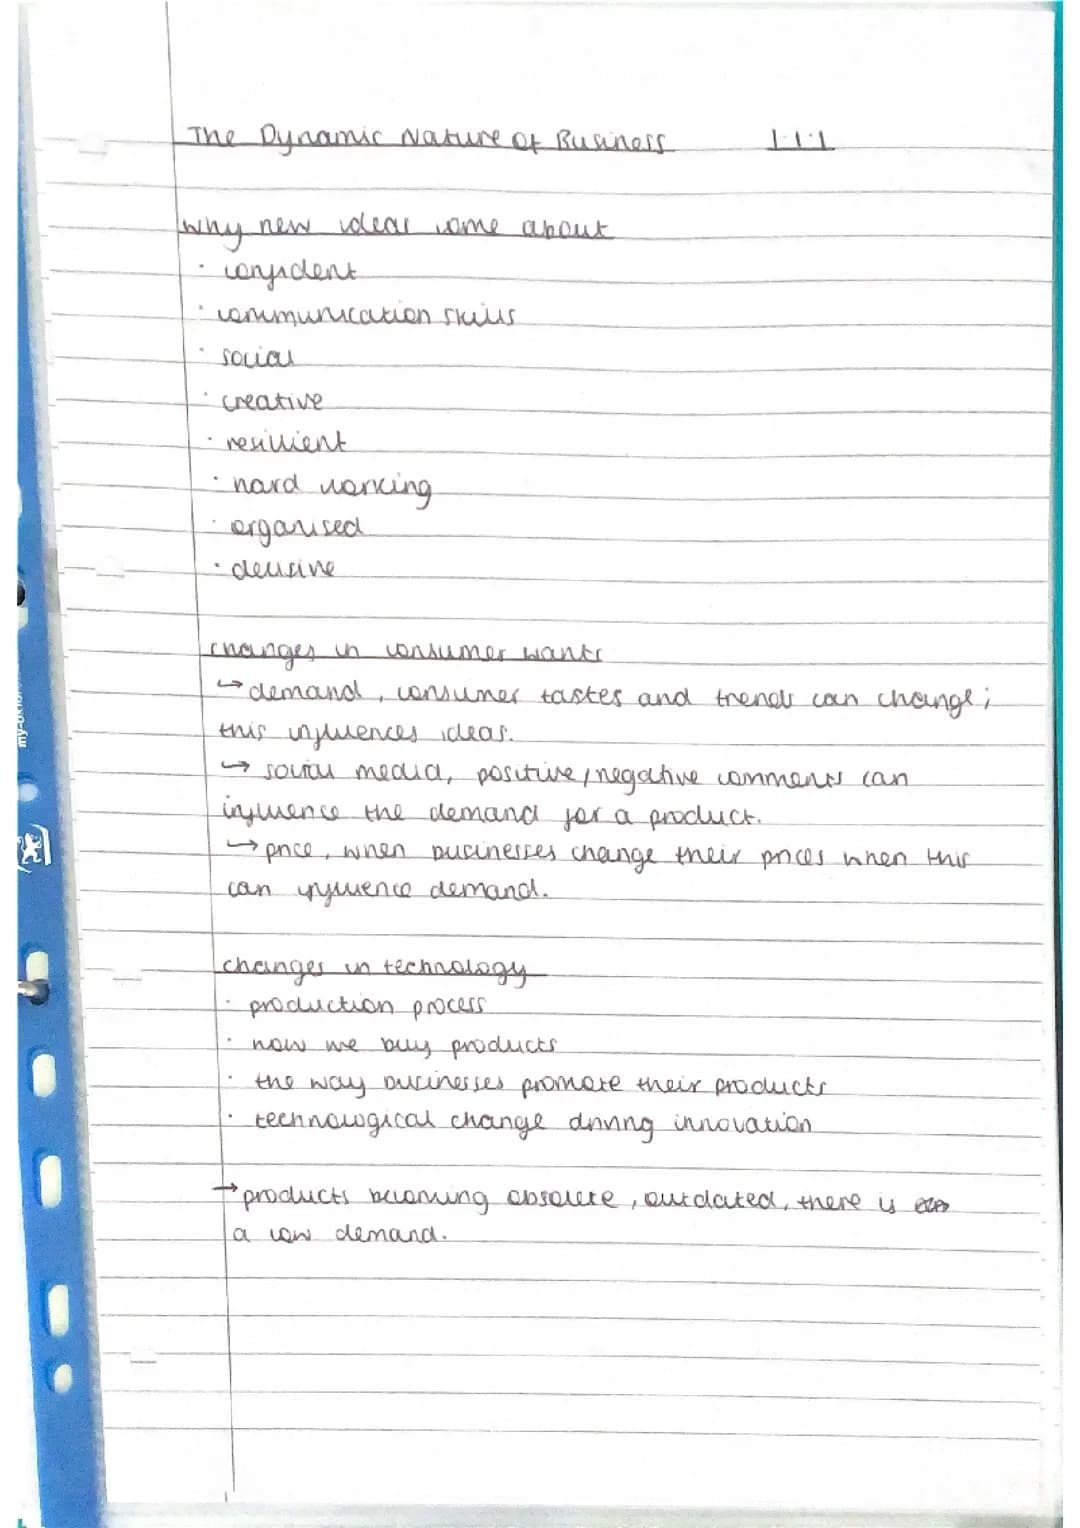 The Dynamic Nature of Business 1.1.1
why new ideas come about
· confident
· communication skills
· social
· creative
· resilient
· hard working
· organised
· decisive
changes in consumer wants
↳ demand, consumer tastes and trends can change;
this influences ideas.
→ social media, positive/negative comments can
influence the demand for a product.
→ price, when businesses change their prices when this
can influence demand.
changes in technology
· production process
· how we buy products
· the way businesses promote their products
· technological change driving innovation
→ products becoming obsolete, outdated, there is
a low demand.